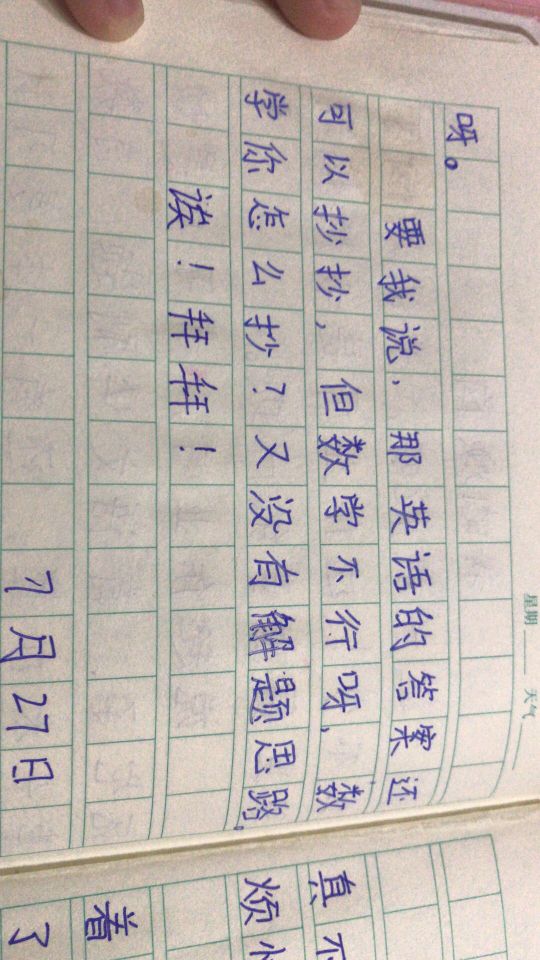 星期 天气
呀。
要我说，那英语的答案还
可以抄抄，但数学不行呀，数
学你怎么抄？又没有解题思路。
诶！拜拜！
7月27日
真不
烦
着
了